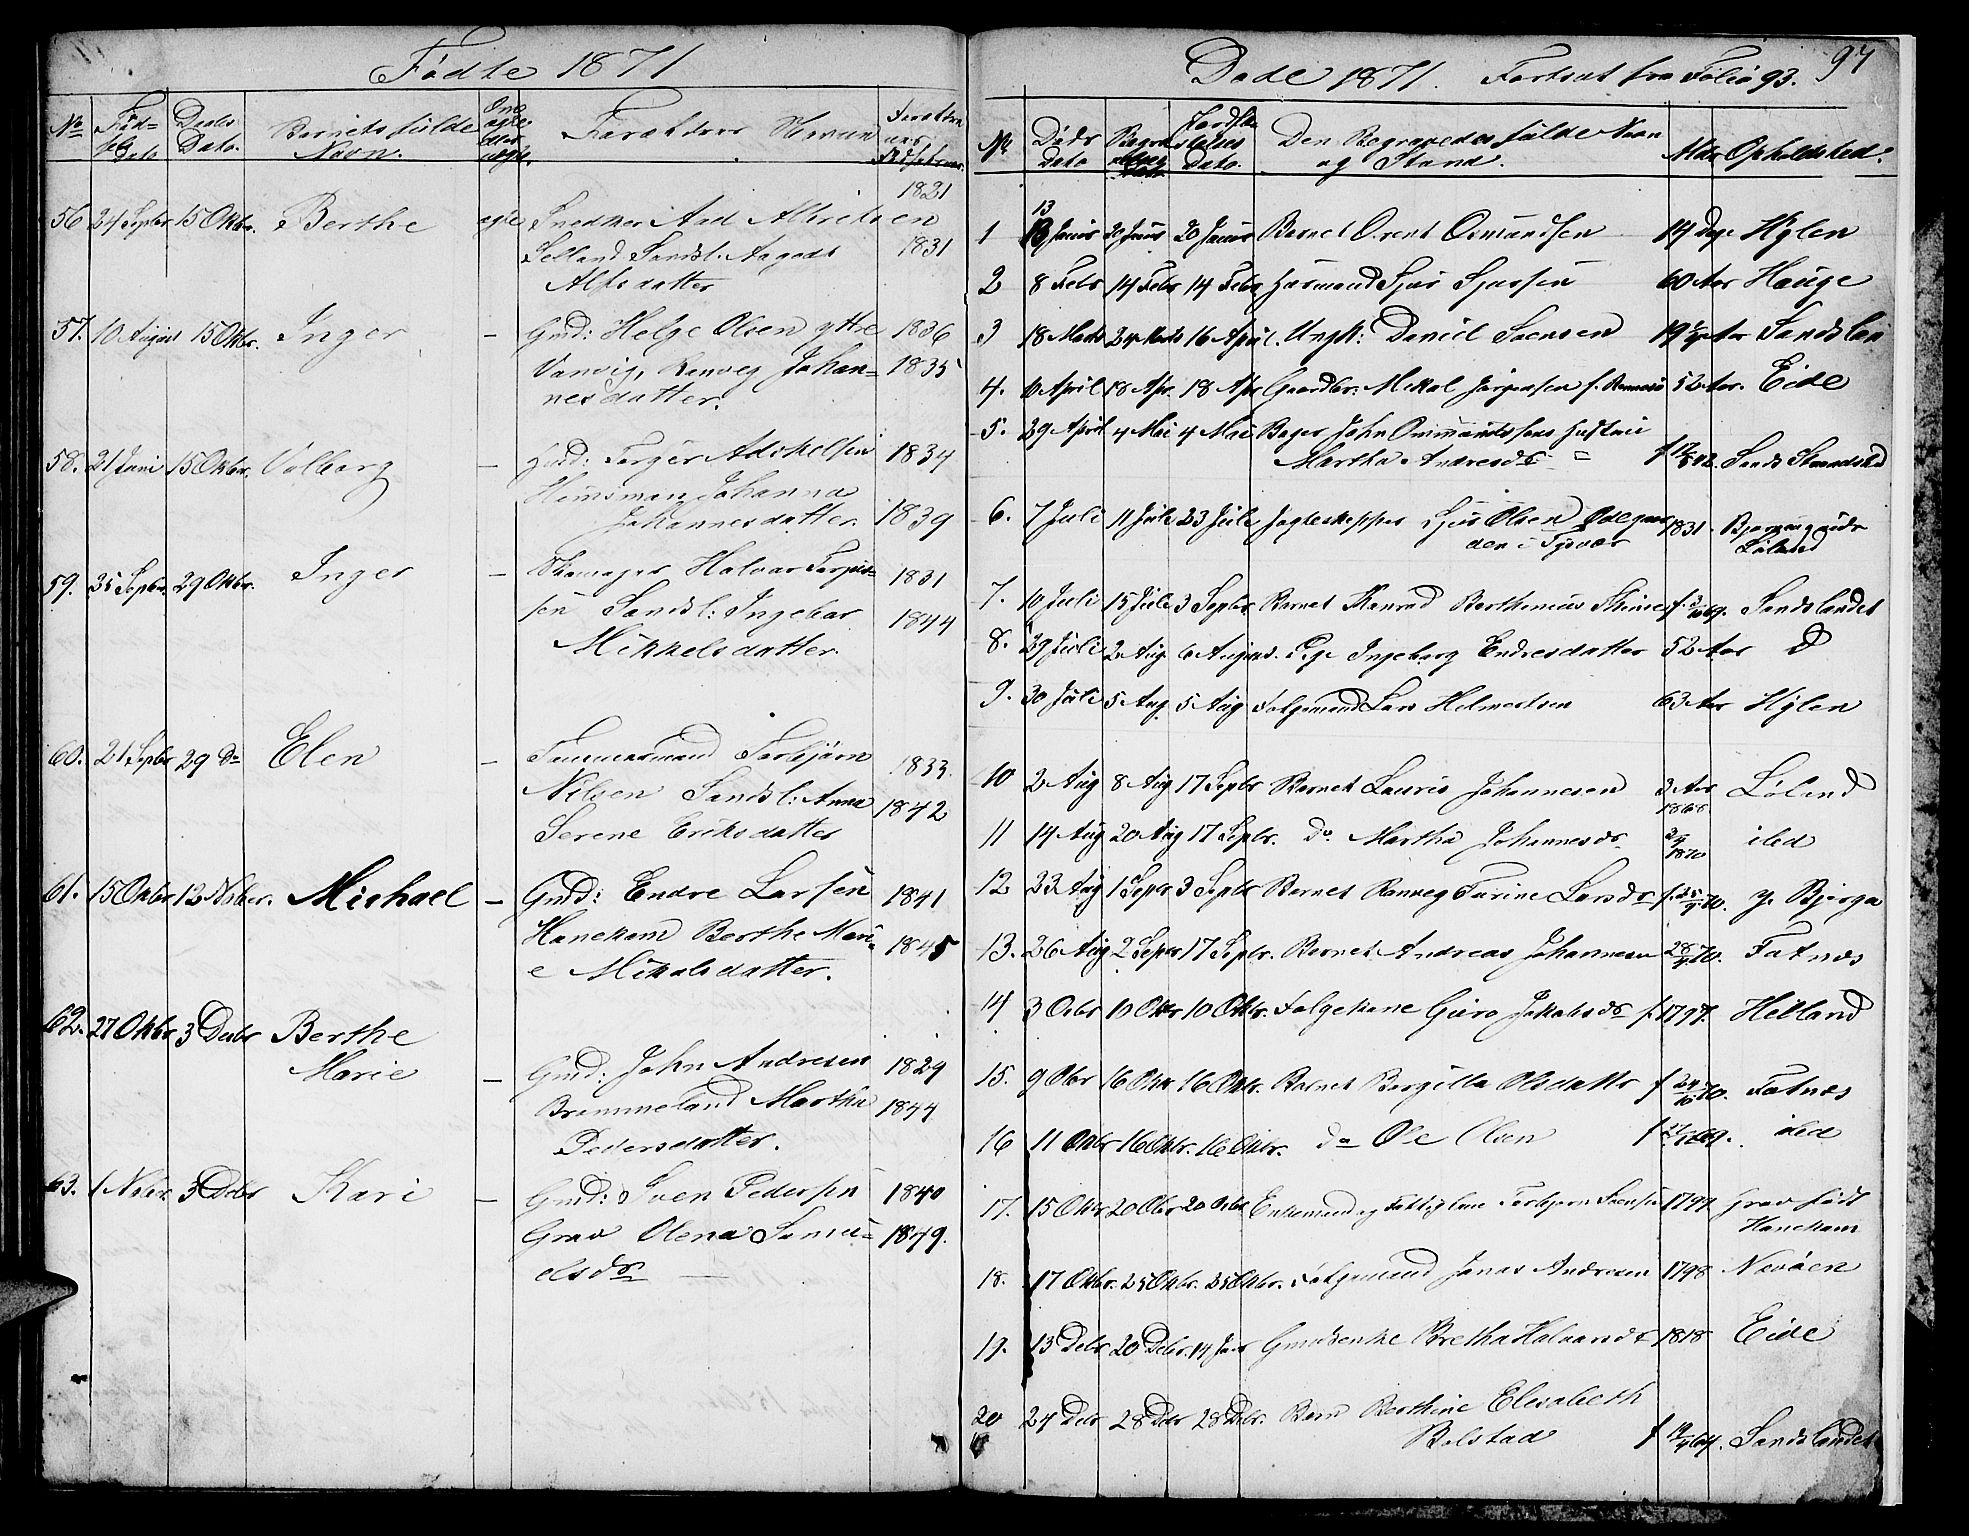 Fødte 1871
No Fød= sels Dato Daabs Dato. Barnets fulde Navn. Om ægte eller uægte. Forældres Navn Forældrenes Fødselsaar
1821
56 24 Septbr 15 Oktbr. Berthe ægte Snedker Aad Albretsen
Selland Sandsl: Aagodt 1831
Alfsdatter
57. 10 August 15 Oktbr. Inger – Gmd: Helge Olsen yttre 1836
Vanvig, Ranveg Johan= 1835
nesdatter.
58. 21 Juni 15 Oktbr. Valborg – Husd: Torger Adskelsen 1834
Heimsman Johanna
Johannesdatter. 1839
59. 25 Septbr. 29 Oktbr. Inger – Skomager Halvar Torgier= 1831
sen Sandsl: Ingebor 1844
Mikkelsdatter.
60. 21 Septbr 29 Do Elen – Tømmermand Torbjørn 1833.
Nilsen Sandsl: Anna 1842
Serene Eriksdatter
61. 15 Oktbr 12 Novber. Michael – Gmd: Endre Larsen 1841
Hanekam Berthe Mari= 1845
e Mikalsdatter.
62. 27 Oktbr 3 Decbr Berthe
Marie – Gmd: John Andresen 1829
Brommeland Martha 1844
Pedersdatter.
63. 1 Novbr 3 Decbr Kari – Gmd: Sven Pedersen 1840
Grav Olena Samu= 1849.
elsdr
Døde 1871. Fortsat fra Folio 93. 97
No Døds dato Begravelses Dato Jordfæstelses Dato. Den Begravedes fulde Navn og Stand. Alder Opholdsted.
13
1 Januar 20 Januar 20 Januar Barnet Orent Osmundsen 14 Dage Hylen
2 8 Febr 14 Febr 14 Febr Husmand Sjur Sjursen 60 Aar Hauge
3 18 Marts 24 Marts 16 April. Ungk: Daniel Svensen 19½ Aar Sandslan
4. 10 April 18 Apr. 18 Apr Gaardbr: Mikal Jørgensen f. Rennesø 52 Aar. Eide
5. 29 April 4 Mai 4 Mai Bager John Ommundsens Hustru
Martha Andresdr = Sands Strandsted
6. 7 Juli 11 Juli 23 Juli Jagteskipper Sjur Olsen Odegaar
den i Tysvær 1831. Bjørnegaade
Løland
7. 10 Juli 15 Juli 3 Septbr Barnet Konrad Berthinius Sandslandet
8. 29 Juli 2 Aug 6 August. Pige Ingeborg Endresdatter 52 Aar D
9. 30 Juli 5 Aug 5 Aug Folgemand Lars Helmertsen 63 Aar Hylen
10 2 Aug 8 Aug 17 Septbr Barnet Lauris Johannesen 3 Aar Løland
1868
11 14 Aug 20 Aug 17 Septbr. do Martha Johannesdr. 1870 ibd
12 23 Aug 1 Septr 3 Septbr Barnet Ranveg Turine Larsdr f. 70. y. Bjerga
13. 26 Aug 2 Septr 17 Septbr. Barnet Andreas Johannesen 70. Fatnes
14 3 Octbr 10 Oktr 10 Oktbr. Folgekone Guro Jakobsdr f. 1797. Helland
15. 9 Oktbr 16 Oktr 16 Oktr. Barnet Bergitta Olsdattr f 24/10 70. Fatnes
16 11 Oktbr 16 Oktbr. 16 Oktbr. do Ole Olsen f 69. ibd
17. 15 Oktbr 20 Oktbr 20 Octbr Enkemand og Fattiglem Torbjørn Svensen 1797 Grav født
Hanekam
18. 17 Oktbr. 25 Oktbr. 25 Oktbr. Folgemand Jonas Andresen 1798 Nevøen
19. 13 Decbr 20 Decbr. 14 Janr Gmdsenke Bretha Halvards 1818 Eide
20 24 Decbr 28 Decbr 28 Decbr. Barn Berthine Elisabeth
Bolstad f 12/4 64. Sandslandet